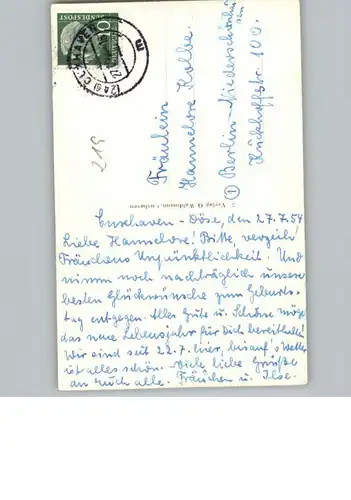 DEUTSCHE BUNDESPOST
10
(24a) CUXHAVEN
a
219
Fräulein
Hannelore Kolbe
① Berlin-Niederschönhausen
Kuckhoffstr. 100.
Verlag G. Waldmann, Cuxhaven
Cuxhaven - Döse, den 27.7.54
Liebe Hannelore! Bitte, verzeih'
Fräuchens Unpünktlichkeit. Und
nimm noch nachträglich unsere
besten Glückwünsche zum Geburts-
tag entgegen. Alles Gute u. Schöne möge
das neue Lebensjahr für Dich bereithalten!
Wir sind seit 22.7. hier, bis auf's Wetter
ist alles schön. Viele liebe Grüße
an Euch alle. Fräuchen u. Ilse.